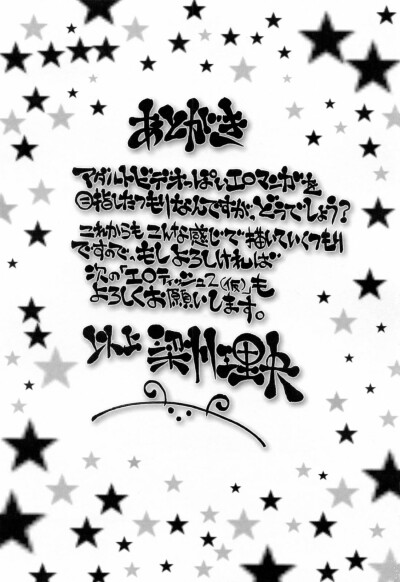 あとがき
アダルトビデオっぽいエロマンガを
目指したつもりなんですが、どうでしょう？
これからもこんな感じで描いていくつもり
ですので、もしよろしければ
次の「エロティッシュ2(仮)」も
よろしくお願いします。
以上 梁川理央